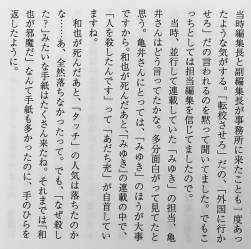 当時編集長と副編集長が事務所に来たことも一度あっ
たような気がする。「転校させろ」だの、「外国に行か
せろ」だの言われるのを黙って聞いてました。でもこ
っちとしては担当編集を信じてましたので。
当時、並行して連載していた「みゆき」の担当、亀
井さんはどう言ってたかな。多分面白がって見てたと
思う。亀井さんにとっては「みゆき」のほうが大事
ですから。和也が死んだあと、「みゆき」の連載の中で、
「人を殺したんです」って〝あだち充〟が自首してい
ますね。
和也が死んだあと、「タッチ」の人気は落ちたのか
な……あ、全然落ちなかったって。でも、「なぜ殺し
た?」みたいな手紙はたくさん来たね。それまでは「和
也が邪魔だ」なんて手紙も多かったのに、手のひらを
返したように。